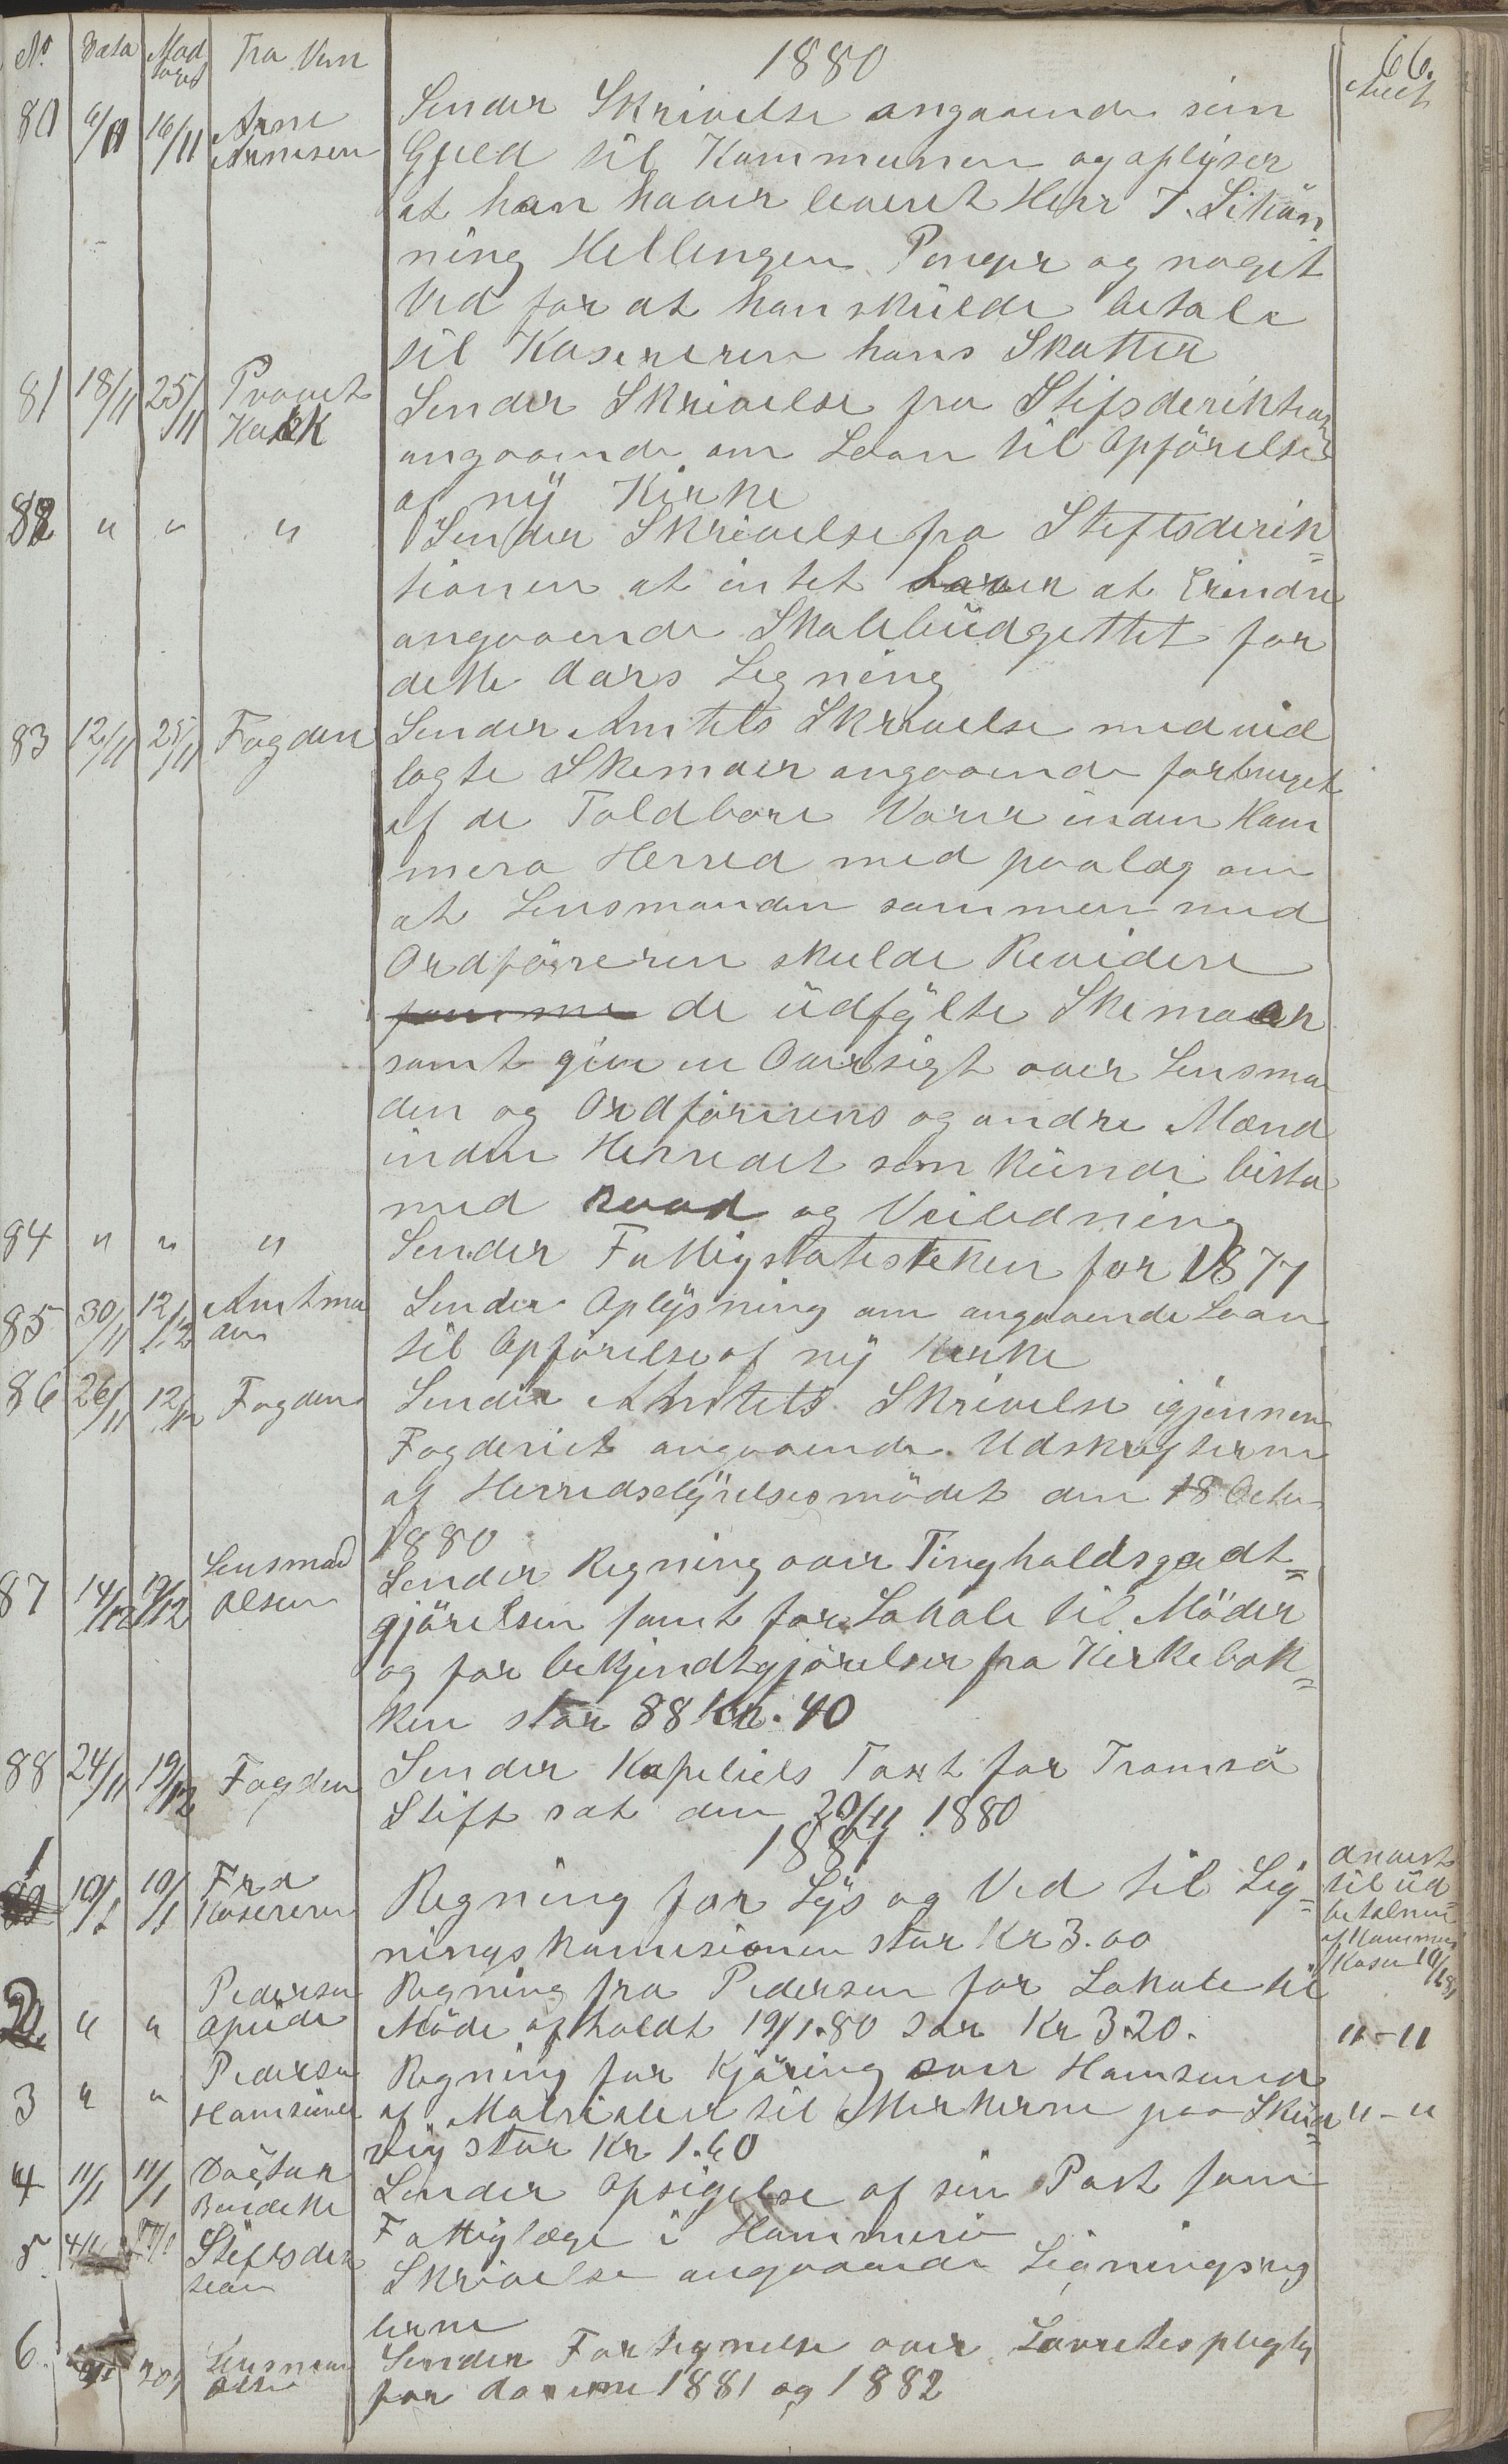 66.
No Dato Mod
taget Fra Vem 1880
80 6/11 16/11 Arne Sender Skrivelse angaaende sin
Arnesen Gjeld til Kommunen og oplyser
at han haver leveret Herr J.
ning Hellingen Penger og noget
Ved for at han skulde betale
til Kasereren hans Skatter
81 18/11 25/11 Provst Sender Skrivelse fra
angaaende om Laan til Opförelse
af ny Kirke
82 " " " Sender Skrivelse fra Stiftsderik=
tionen at intet haver at Erindre
angaaende Skolebudgettet for
dette Aars Ligning
83 12/11 25/11 Fogden Sender Amtets Skrivelse med ved
lagte Skemaer angaaende forbruget
af de Toldbare Varer inden Ham
merø Herred med paalæg om
at Lensmanden sammen med
Ordföreren skulde Revidere
de udfylte Skemaer
samt give en Oversigt over Lensma
den og Ordförerens og andre Mænd
inden Herredet som kunde bista
med Raad og Veiledning
84 " " " Sender Fattigstatesteken for 1877
85 30/11 12/12 Amtma Sender Oplysning om angaaende Laan
den til Opförelse af ny Kirke
86 26/11 12/12 Fogden Sender Amtets Skrivelse igjennem
Fogderiet angaaende Udskrifterne
af Herredstyrelsesmödet den 18 Octbr
1880
87 14/12 19/12 Lensmad Sender Regning over Tingholdsgodt=
Olsen gjörelsen samt for Lokale til Möder
og for bekjendtgjörelser fra Kirkebak=
ken stor 88 Kr. 40
88 24/11 19/12 Fogden Sender Kapitels Taxt for Tromsö
Stift sat den 20/11 1880
1881
1 10/1 10/1 Fra Regning for Lys og Ved til Lig=
Kasereren ningskomisionen stor Kr 3.00
anvist
til ud
betalning
af Kommune
Kasen
2 " " Pedersen Regning fra Pedersen for Lokale til
Möde afholdt 19/1.80 stor Kr 3.20. "-"
3 " " Pedersen Regning for Kjöring over Hamsund
Hamsund af Matrialer til Merkerne paa Skud "-"
vig stor Kr 1.60
4 11/1 11/1 Dogtor Sender Opsigelse af sin Post som
Fattiglæge i Hammerö
5 Skrivelse angaaende Ligningsreg
lerne
6. Lensman Sender Fortegnelse over Lavrettespligty
Olsen for Aarene 1881 og 1882